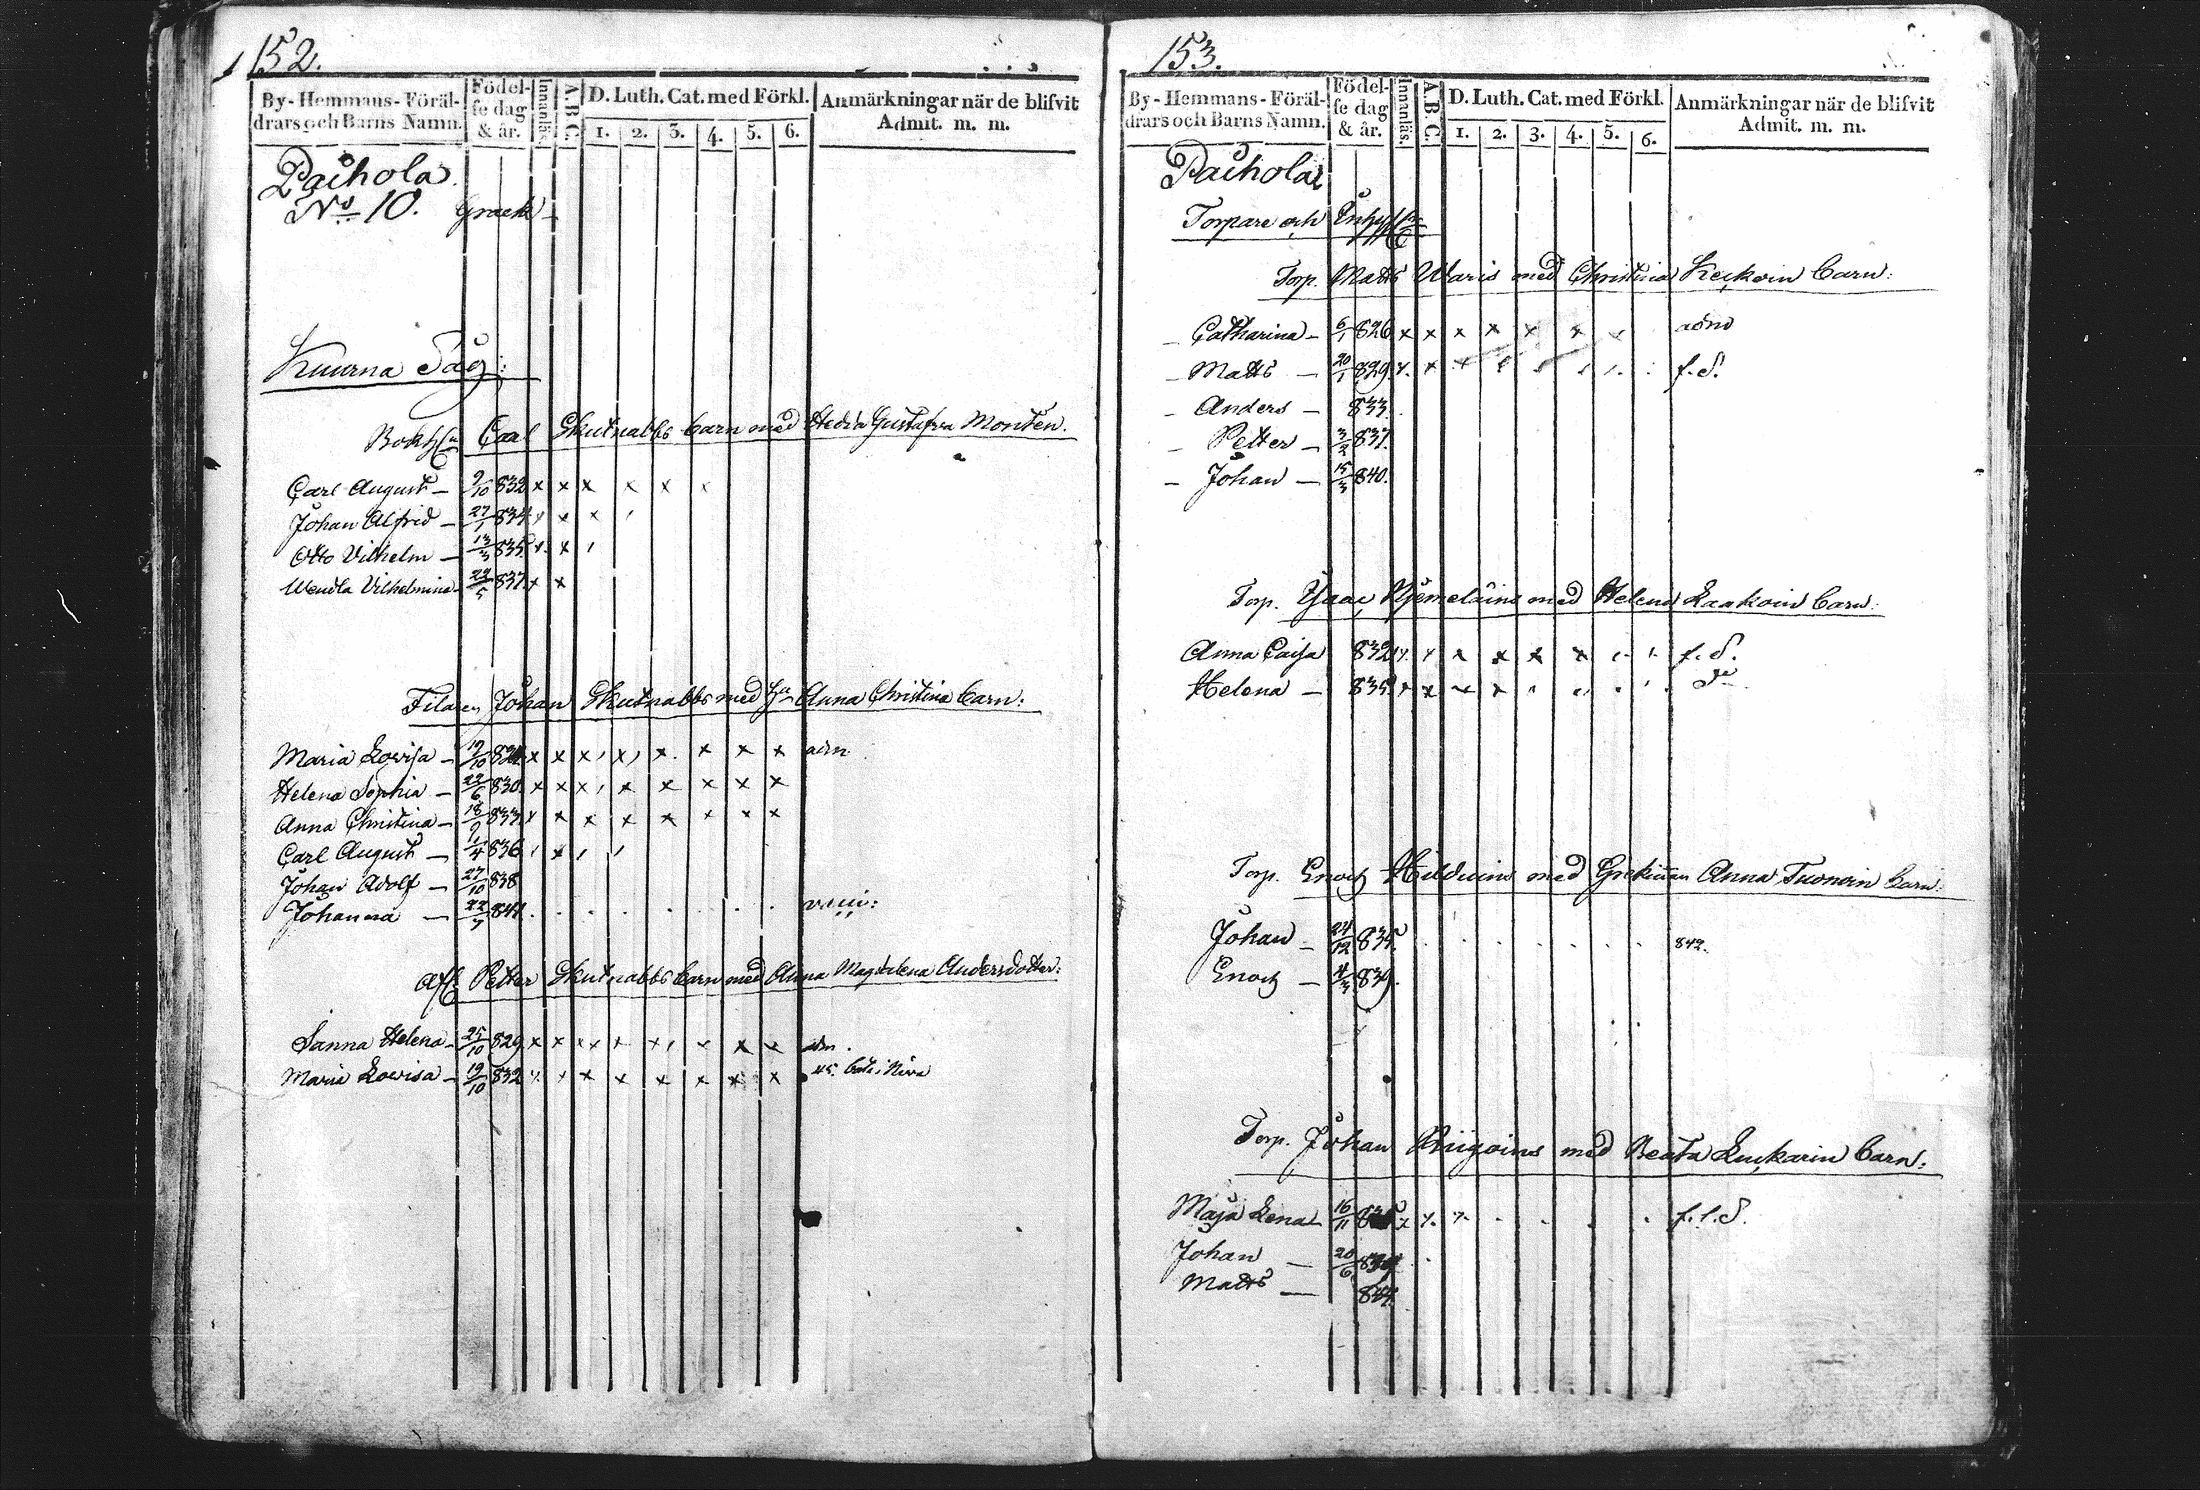 152.
By-Hemmans-Föräl- Födel- Innanläs. A.B.C. D. Luth. Cat. med Förkl. Anmärkningar när de blifvit
drars och Barns Namn. se dag Admit. m. m.
& år. 1. 2. 3. 4. 5. 6.
Paihola
No 10. Graek
Kuurna Såg:
Carl Skutnabbs barn med Hedda Gustafva Montén.
Carl August — 9/10 832 x x x x x x
Johan Alfrid — 27/1 834 x x x
Otto Vilhelm — 13/3 835 x x
Wendla Vilhelmina 24/5 837 x x
Filaren Johan Skutnabbs med Anna Christina barn:
Maria Lovisa — 19/10 82 x x x x x x x x adm
Helena Sophia — 22/6 830 x x x x x x x x
Anna Christina — 18/9 833 x x x x x x x x
Carl August — 1/4 836 x
Johan Adolf — 27/10 838
Johanna — 22/7 841
Afl. Petter Skutnabbs barn med Anna Magdalena Andersdotter:
Sanna Helena — 25/10 829 x x x x x x x x adm.
Maria Lovisa — 19/10 832 x x x x x x x x 45.
153.
By-Hemmans-Föräl- Födel- Innanläs. A.B.C. D. Luth. Cat. med Förkl. Anmärkningar när de blifvit
drars och Barns Namn. se dag Admit. m. m.
& år. 1. 2. 3. 4. 5. 6.
Paihola
Torpare och Inhys
Torp. Matts Waris med Christina Keckoin Barn:
— Catharina — 6/1 826 x x x x x x x adm
— Matts — 20/1 829 x x f. d.
— Anders — 833.
— Petter — 3/2 837
— Johan — 15/3 840.
Torp. Isaac med Helena Laakoin barn:
Anna Caisa 832 x x x x x x f. d.
Helena — 835 x x x x do
Torp. Enoch med Anna Tuonoin barn:
Johan — 24/12 835. 842.
Enoch — 4/3 839.
Torp. Johan med Beata barn:
Maja Lena 16/11 x x x f. l. d.
Johan — 20/6
Matts — 844